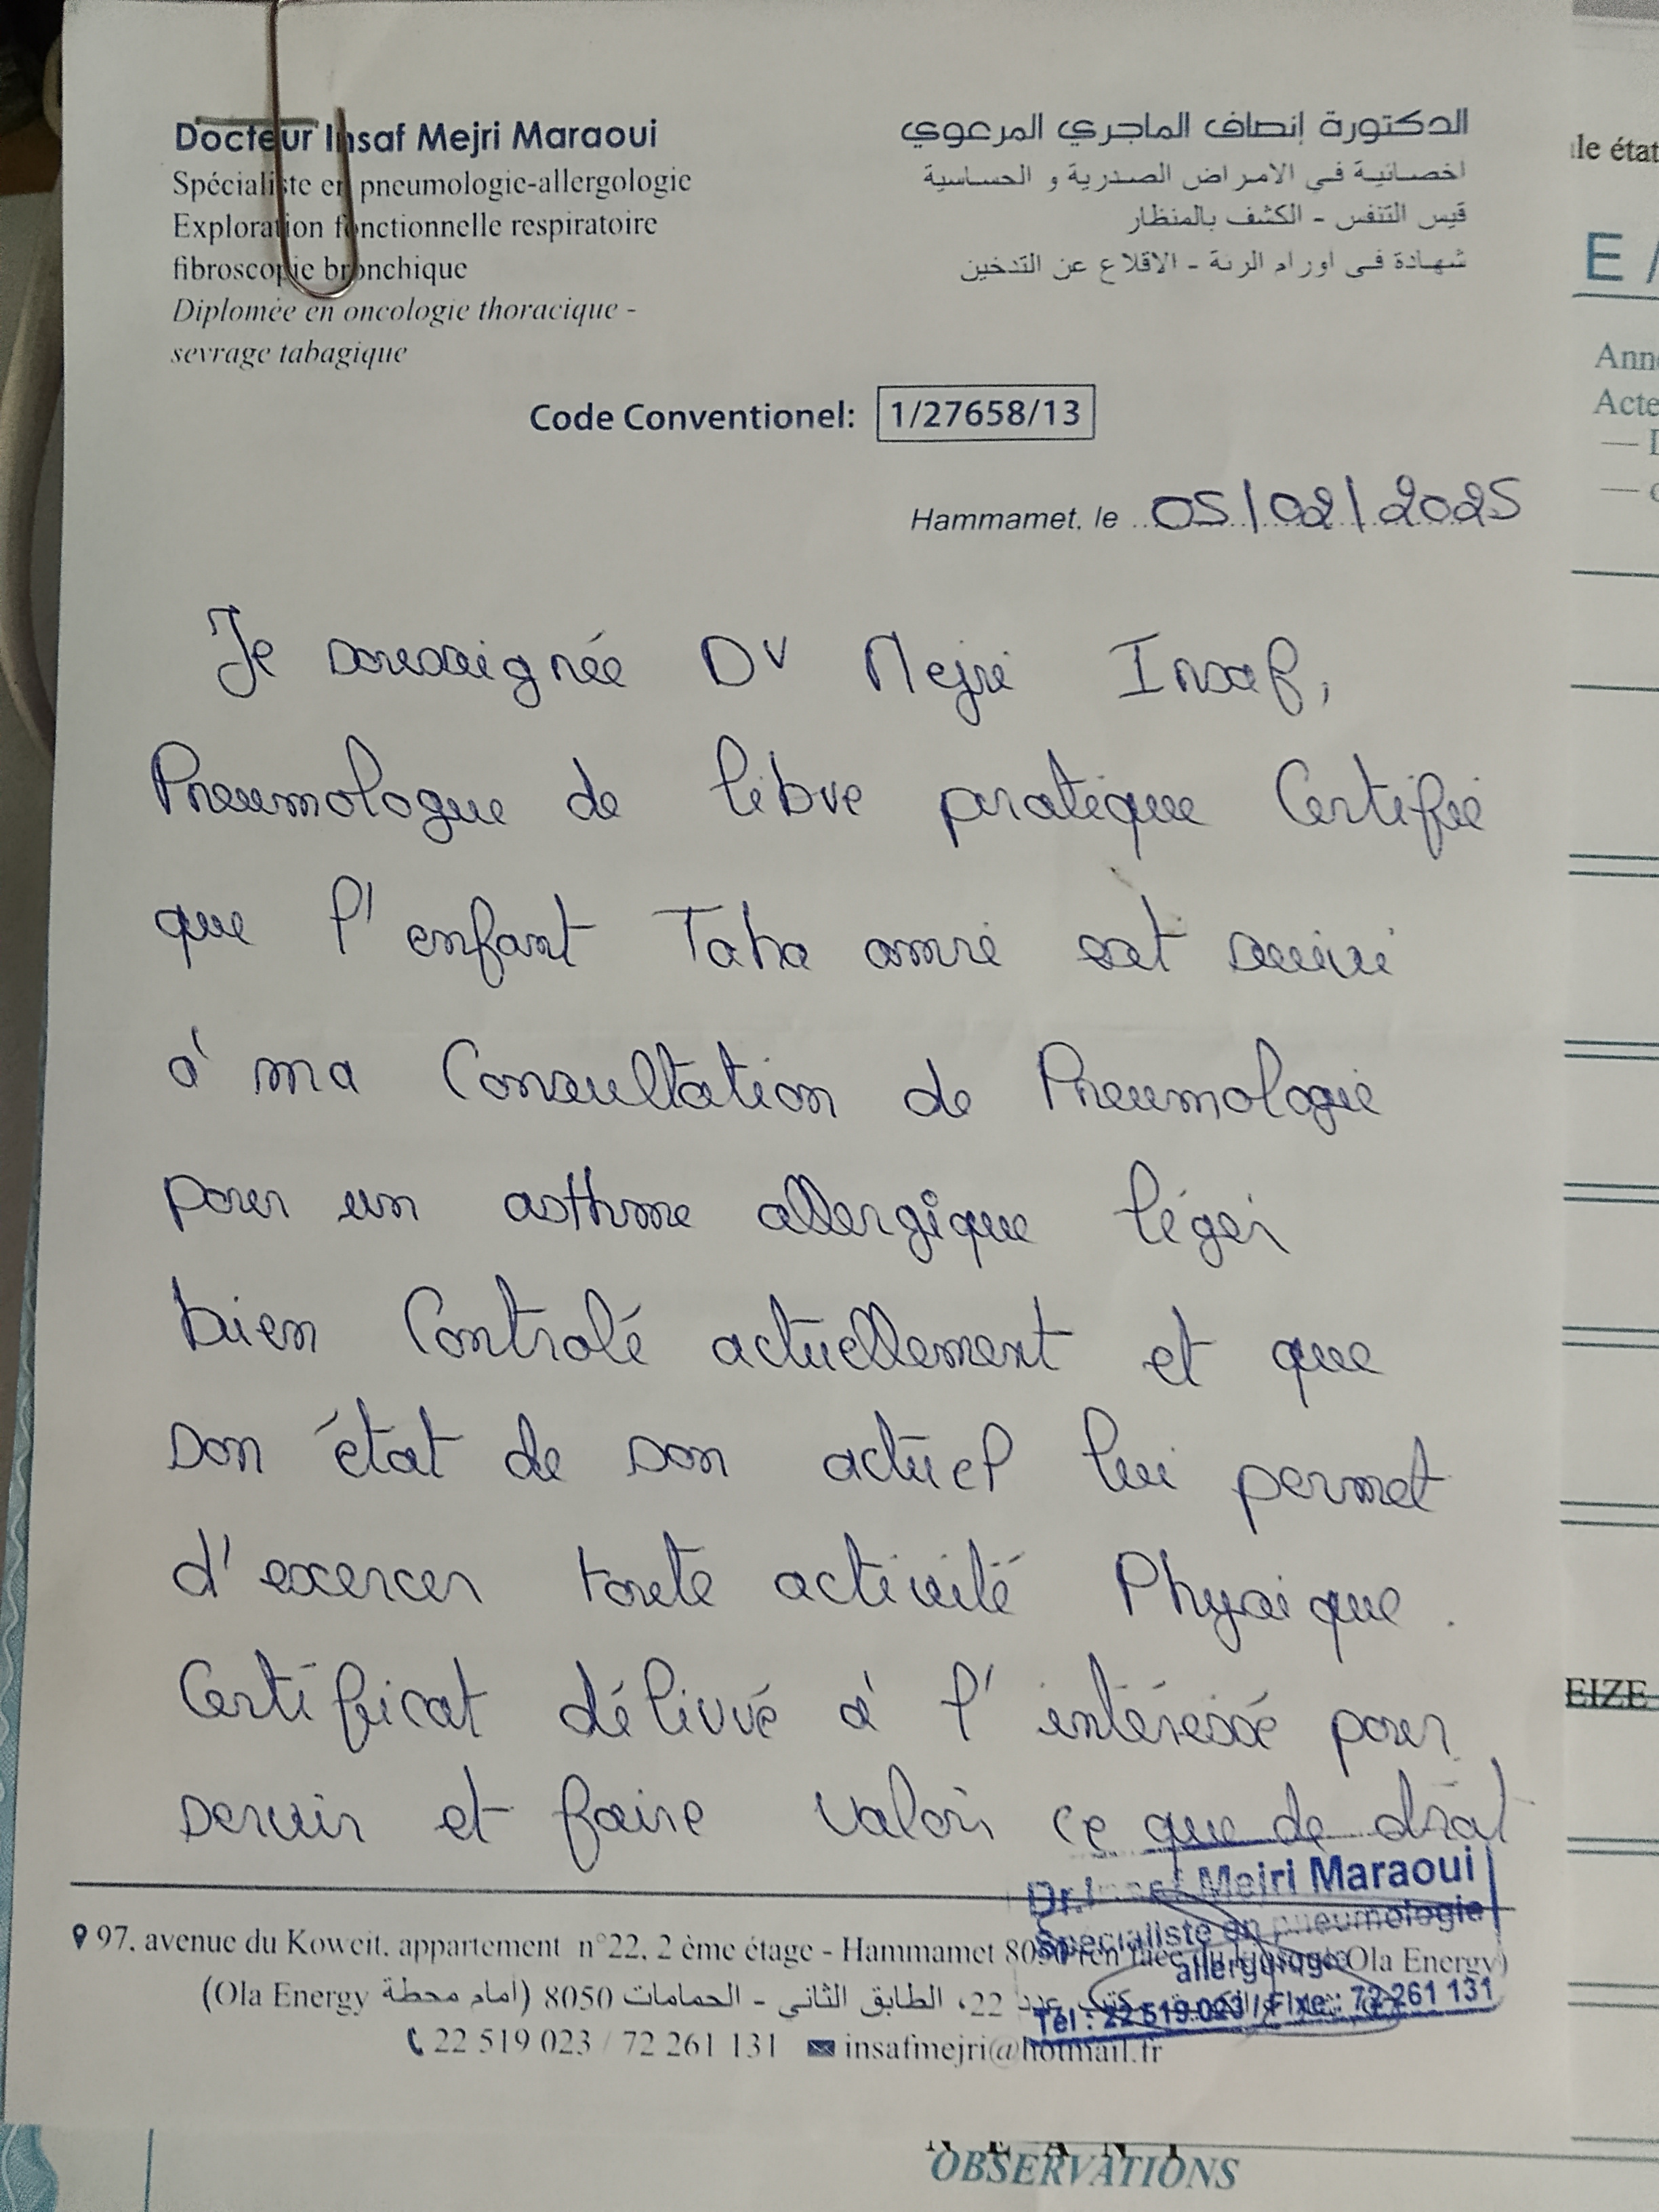 Docteur Insaf Mejri Maraoui
Spécialiste en pneumologie-allergologie
Exploration fonctionnelle respiratoire
fibroscopie bronchique
Diplomée en oncologie thoracique -
sevrage tabagique
الدكتورة إنصاف الماجري المرعوي
اخصائية في الامراض الصدرية و الحساسية
قيس التنفس - الكشف بالمنظار
شهادة في اورام الرئة - الاقلاع عن التدخين
Code Conventionel: 1/27658/13
Hammamet, le 05/02/2025
Je soussignée Dr Mejri Insaf,
Pneumologue de libre pratique Certifie
que l'enfant Taha amri est suivi
à ma Consultation de Pneumologie
pour un asthme allergique léger
bien Controlé actuellement et que
son état de son actuel lui permet
d'exercer toute activité Physique.
Certificat délivré à l'intéressé pour
servir et faire valoir ce que de droit
Dr. Mejri Maraoui
Spécialiste en pneumologie
allergologie
Tél : 22 519 023 / Fixe : 72 261 131
97, avenue du Koweit, appartement n°22, 2 ème étage - Hammamet 8050 Ola Energy)
22، الطابق الثاني - الحمامات 8050 (أمام محطة Ola Energy)
22 519 023 / 72 261 131 insafmejri@hotmail.fr
le état
E /
Ann
Acte
EIZE
OBSERVATIONS